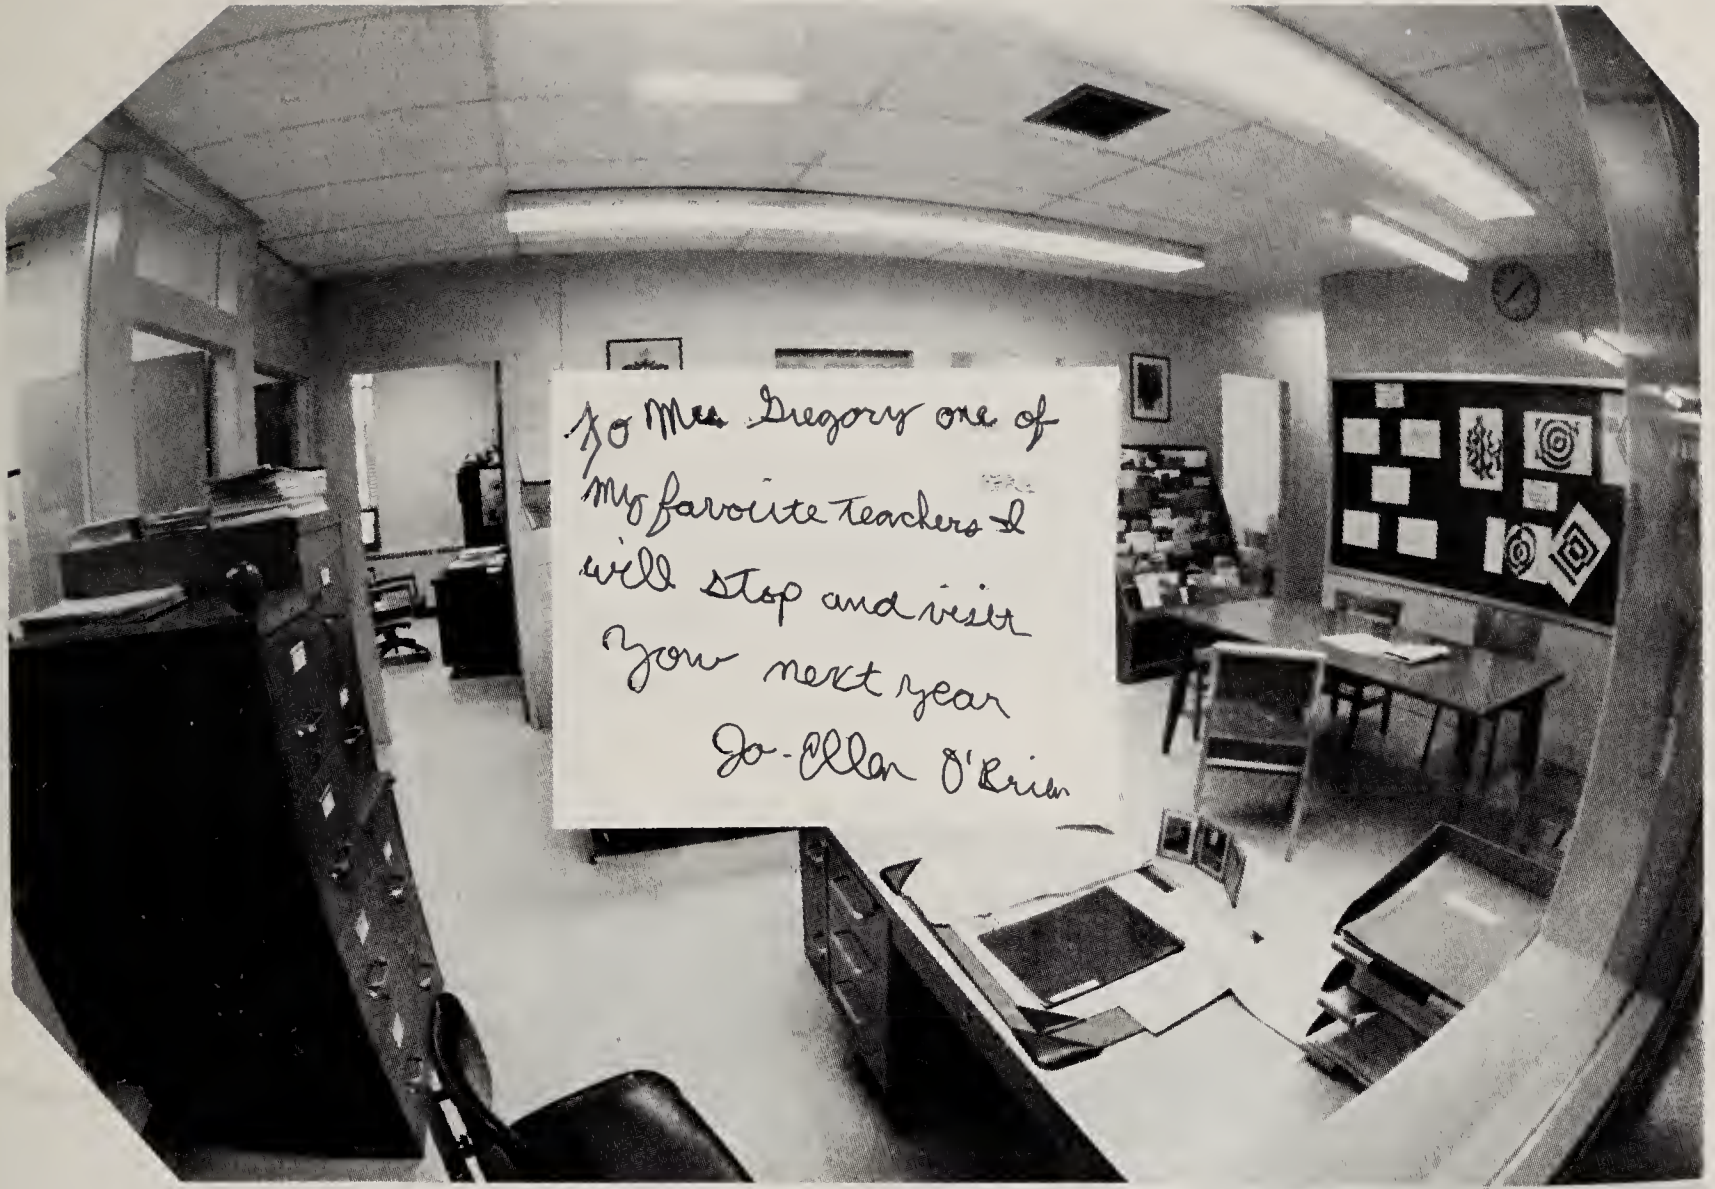 To Mrs Gregory one of
my favorite Teachers I
will stop and visit
you next year
Jo-Ellen O'Brien